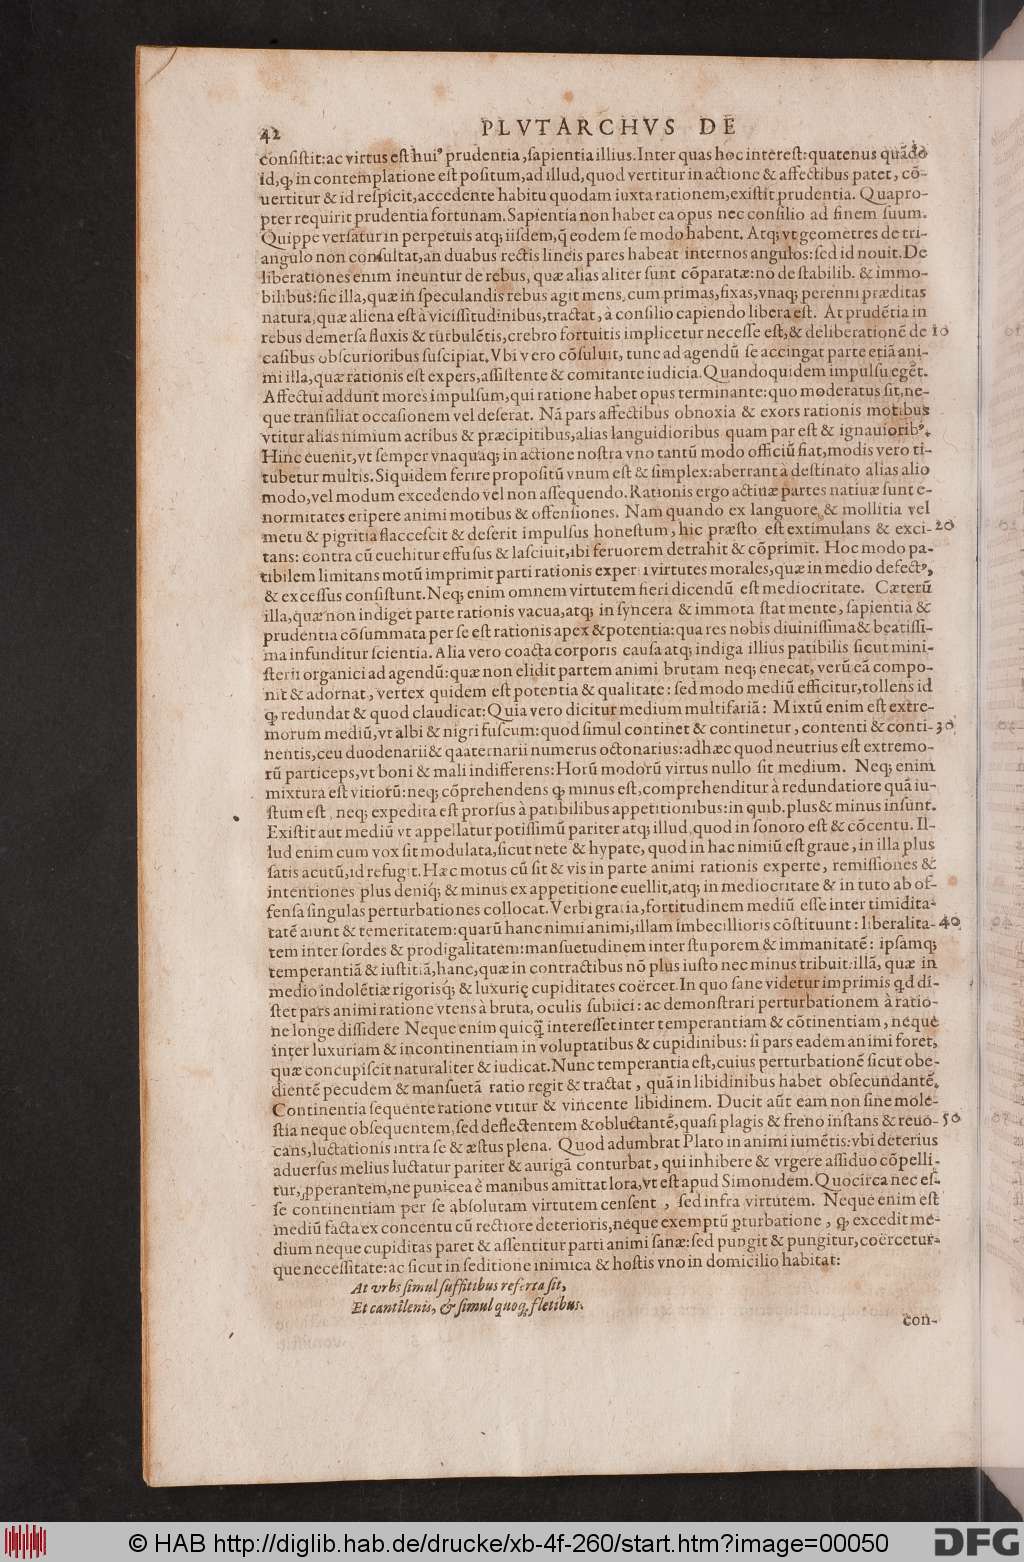 42 PLVTARCHVS DE
conſiſtit: ac virtus eſt huiꝰ prudentia, ſapientia illius. Inter quas hoc intereſt: quatenus quādo
id, ꝙ in contemplatione eſt poſitum, ad illud, quod vertitur in actione & affectibus patet, cō-
uertitur & id reſpicit, accedente habitu quodam iuxta rationem, exiſtit prudentia. Quapro-
pter requirit prudentia fortunam. Sapientia non habet ea opus nec conſilio ad finem ſuum.
Quippe verſatur in perpetuis atq; iiſdem, q̄ eodem ſe modo habent. Atq; vt geometres de tri-
angulo non conſultat, an duabus rectis lineis pares habeat internos angulos: ſed id nouit. De
liberationes enim ineuntur de rebus, quæ alias aliter ſunt cōparatæ: nō de ſtabilib. & immo-
bilibus: ſic illa, quæ in ſpeculandis rebus agit mens, cum primas, fixas, vnaq; perenni præditas
natura, quæ aliena eſt à viciſſitudinibus, tractat, à conſilio capiendo libera eſt. At prudētia in
rebus demerſa fluxis & turbulētis, crebro fortuitis implicetur neceſſe eſt, & deliberationē de 10
caſibus obſcurioribus ſuſcipiat. Vbi vero cōſuluit, tunc ad agendū ſe accingat parte etiā ani-
mi illa, quæ rationis eſt expers, aſſiſtente & comitante iudicia. Quandoquidem impulſu egēt.
Affectui addunt mores impulſum, qui ratione habet opus terminante: quo moderatus ſit, ne-
que tranſiliat occaſionem vel deſerat. Nā pars affectibus obnoxia & exors rationis motibus
vtitur alias nimium acribus & præcipitibus, alias languidioribus quam par eſt & ignauioribꝰ.
Hinc euenit, vt ſemper vnaquaq; in actione noſtra vno tantū modo officiū fiat, modis vero ti-
tubetur multis. Siquidem ferire propoſitū vnum eſt & ſimplex: aberrant à deſtinato alias alio
modo, vel modum excedendo vel non aſſequendo. Rationis ergo actiuæ partes natiuæ ſunt e-
normitates eripere animi motibus & offenſiones. Nam quando ex languore & mollitia vel
metu & pigritia flacceſcit & deſerit impulſus honeſtum, hic præſto eſt extimulans & exci- 20
tans: contra cū euehitur effuſus & laſciuit, ibi feruorem detrahit & cōprimit. Hoc modo pa-
tibilem limitans motū imprimit parti rationis experti virtutes morales, quæ in medio defectꝰ,
& exceſſus conſiſtunt. Neq; enim omnem virtutem fieri dicendū eſt mediocritate. Cæterū
illa, quæ non indiget parte rationis vacua, atq; in ſyncera & immota ſtat mente, ſapientia &
prudentia cōſummata per ſe eſt rationis apex & potentia: qua res nobis diuiniſſima & beatiſſi-
ma infunditur ſcientia. Alia vero coacta corporis cauſa atq; indiga illius patibilis ſicut mini-
ſterii organici ad agendū: quæ non elidit partem animi brutam neq; enecat, verū eā compo-
nit & adornat, vertex quidem eſt potentia & qualitate: ſed modo mediū efficitur, tollens id
ꝙ redundat & quod claudicat: Quia vero dicitur medium multifariā: Mixtū enim eſt extre-
morum mediū, vt albi & nigri fuſcum: quod ſimul continet & continetur, contenti & conti- 30
nentis, ceu duodenarii & qaaternarii numerus octonarius: adhæc quod neutrius eſt extremo-
rū particeps, vt boni & mali indifferens: Horū modorū virtus nullo ſit medium. Neq; enim
mixtura eſt vitiorū: neq; cōprehendens ꝙ minus eſt, comprehenditur à redundatiore quā iu-
ſtum eſt, neq; expedita eſt prorſus à patibilibus appetitionibus: in quib. plus & minus inſunt.
Exiſtit aut mediū vt appellatur potiſſimū pariter atq; illud quod in ſonoro eſt & cōcentu. Il-
lud enim cum vox ſit modulata, ſicut nete & hypate, quod in hac nimiū eſt graue, in illa plus
ſatis acutū, id refugit. Hæc motus cū ſit & vis in parte animi rationis experte, remiſſiones &
intentiones plus deniq; & minus ex appetitione euellit, atq; in mediocritate & in tuto ab of-
fenſa ſingulas perturbationes collocat. Verbi gratia, fortitudinem mediū eſſe inter timidita-
tatē aiunt & temeritatem: quarū hanc nimii animi, illam imbecillioris cōſtituunt: liberalita- 40
tem inter ſordes & prodigalitatem: manſuetudinem inter ſtuporem & immanitatē: ipſamq;
temperantiā & iuſtitiā, hanc, quæ in contractibus nō plus iuſto nec minus tribuit: illā, quæ in
medio indolētiæ rigorisq́; & luxurię cupiditates coërcet. In quo ſane videtur imprimis qd di-
ſtet pars animi ratione vtens à bruta, oculis ſubiici: ac demonſtrari perturbationem à ratio-
ne longe diſſidere Neque enim quicq̄ intereſſet inter temperantiam & cōtinentiam, neque
inter luxuriam & incontinentiam in voluptatibus & cupidinibus: ſi pars eadem animi foret,
quæ concupiſcit naturaliter & iudicat. Nunc temperantia eſt, cuius perturbationē ſicut obe-
dientē pecudem & manſuetā ratio regit & tractat, quā in libidinibus habet obſecundantē.
Continentia ſequente ratione vtitur & vincente libidinem. Ducit aūt eam non ſine mole-
ſtia neque obſequentem, ſed deflectentem & obluctantē, quaſi plagis & freno inſtans & reuo- 50
cans, luctationis intra ſe & æſtus plena. Quod adumbrat Plato in animi iumētis: vbi deterius
aduerſus melius luctatur pariter & aurigā conturbat, qui inhibere & vrgere aſſiduo cōpelli-
tur, ꝓperantem, ne punicea è manibus amittat lora, vt eſt apud Simonidem. Quocirca nec eſ-
ſe continentiam per ſe abſolutam virtutem cenſent, ſed infra virtutem. Neque enim eſt
mediū facta ex concentu cū rectiore deterioris, neque exemptū ꝑturbatione, ꝙ excedit me-
dium neque cupiditas paret & aſſentitur parti animi ſanæ: ſed pungit & pungitur, coërcetur-
que neceſſitate: ac ſicut in ſeditione inimica & hoſtis vno in domicilio habitat:
At vrbs ſimul ſuffitibus referta ſit,
Et cantilenis, & ſimul quoq; fletibus.
con-
© HAB http://diglib.hab.de/drucke/xb-4f-260/start.htm?image=00050
DFG